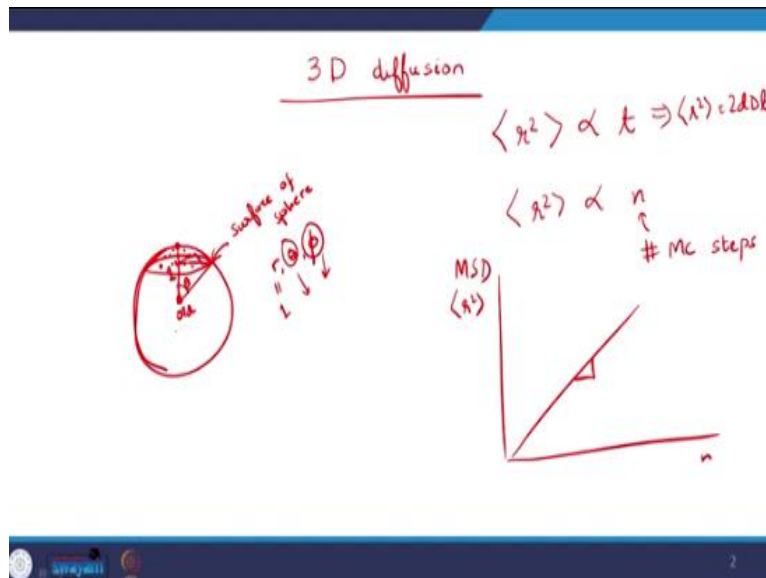 3D diffusion
⟨r²⟩ ∝ t ⇒ ⟨r²⟩ = 2dDt
⟨r²⟩ ∝ n
# MC steps
surface of
sphere
r, θ, φ
1
1
θ
old
MSD
⟨r²⟩
n
swayam
2